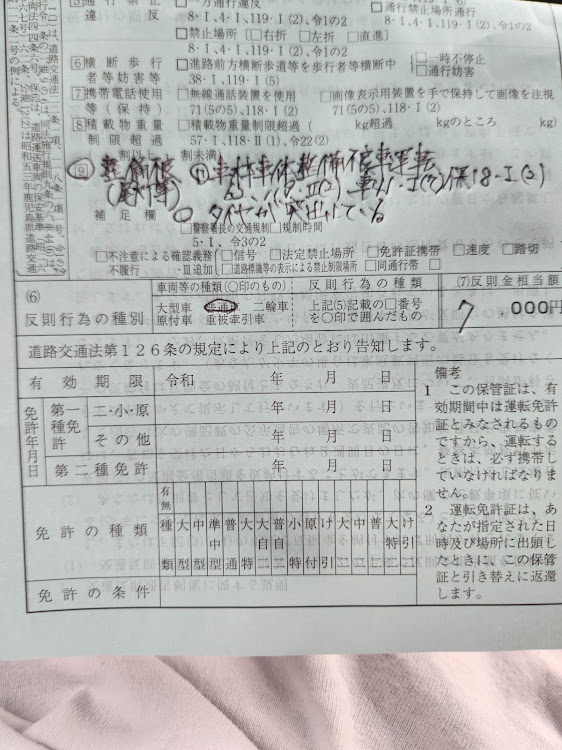 ⑤通行禁止 □一方通行違反 □通行禁止場所通行
違反 8・Ⅰ、4・Ⅰ、119・Ⅰ(2)、令1の2 8・Ⅰ、4・Ⅰ、119・Ⅰ(2)、令1の2
□禁止場所〔□右折 □左折 □直進〕
8・Ⅰ、4・Ⅰ、119・Ⅰ(2)、令1の2
⑥横断歩行者等妨害等 □進路前方横断歩道等を歩行者等横断中 □一時不停止 □通行妨害
38・Ⅰ、119・Ⅰ(5)
⑦携帯電話使用等(保持) □無線通話装置を使用 □画像表示用装置を手で保持して画像を注視
71(5の5)、118・Ⅰ(4) 71(5の5)、118・Ⅰ
⑧積載物重量制限超過 □積載物重量制限超過( kg超過 kgのところ kg)
57・Ⅰ、118・Ⅱ(1)、令22(2)
割以上 割未満
⑨整備不良
タイヤが突出している
補足欄
□警察署長の交通規制 □規制時間
5・Ⅰ、令3の2
□不注意による確認義務不履行 ・Ⅲ追加 □信号 □法定禁止場所 □免許証携帯 □速度 □踏切
□道路標識等の表示による禁止制限場所 □同通行帯
(6)反則行為の種別 車両等の種類(○印のもの) 反則行為の種類 (7)反則金相当額
大型車 普通車 二輪車 上記(5)記載の□番号 7,000円
原付車 重被牽引車 を○印で囲んだもの
道路交通法第126条の規定により上記のとおり告知します。
有効期限 令和 年 月 日
免許年月日 第一種免許 二・小・原 年 月 日
その他 年 月 日
第二種免許 年 月 日
免許の種類 有無 種類 大型 中型 準中型 普通 大特 大自二 普自二 小特 原付 け引 大二 中二 普二 大特二 け引二
免許の条件
備考
1 この保管証は、有
効期間中は運転免許
証とみなされるもの
ですから、運転する
ときは、必ず携帯し
ていなければなりま
せん。
2 運転免許証は、あ
なたが指定された日
時及び場所に出頭し
たときに、この保管
証と引き替えに返還
します。